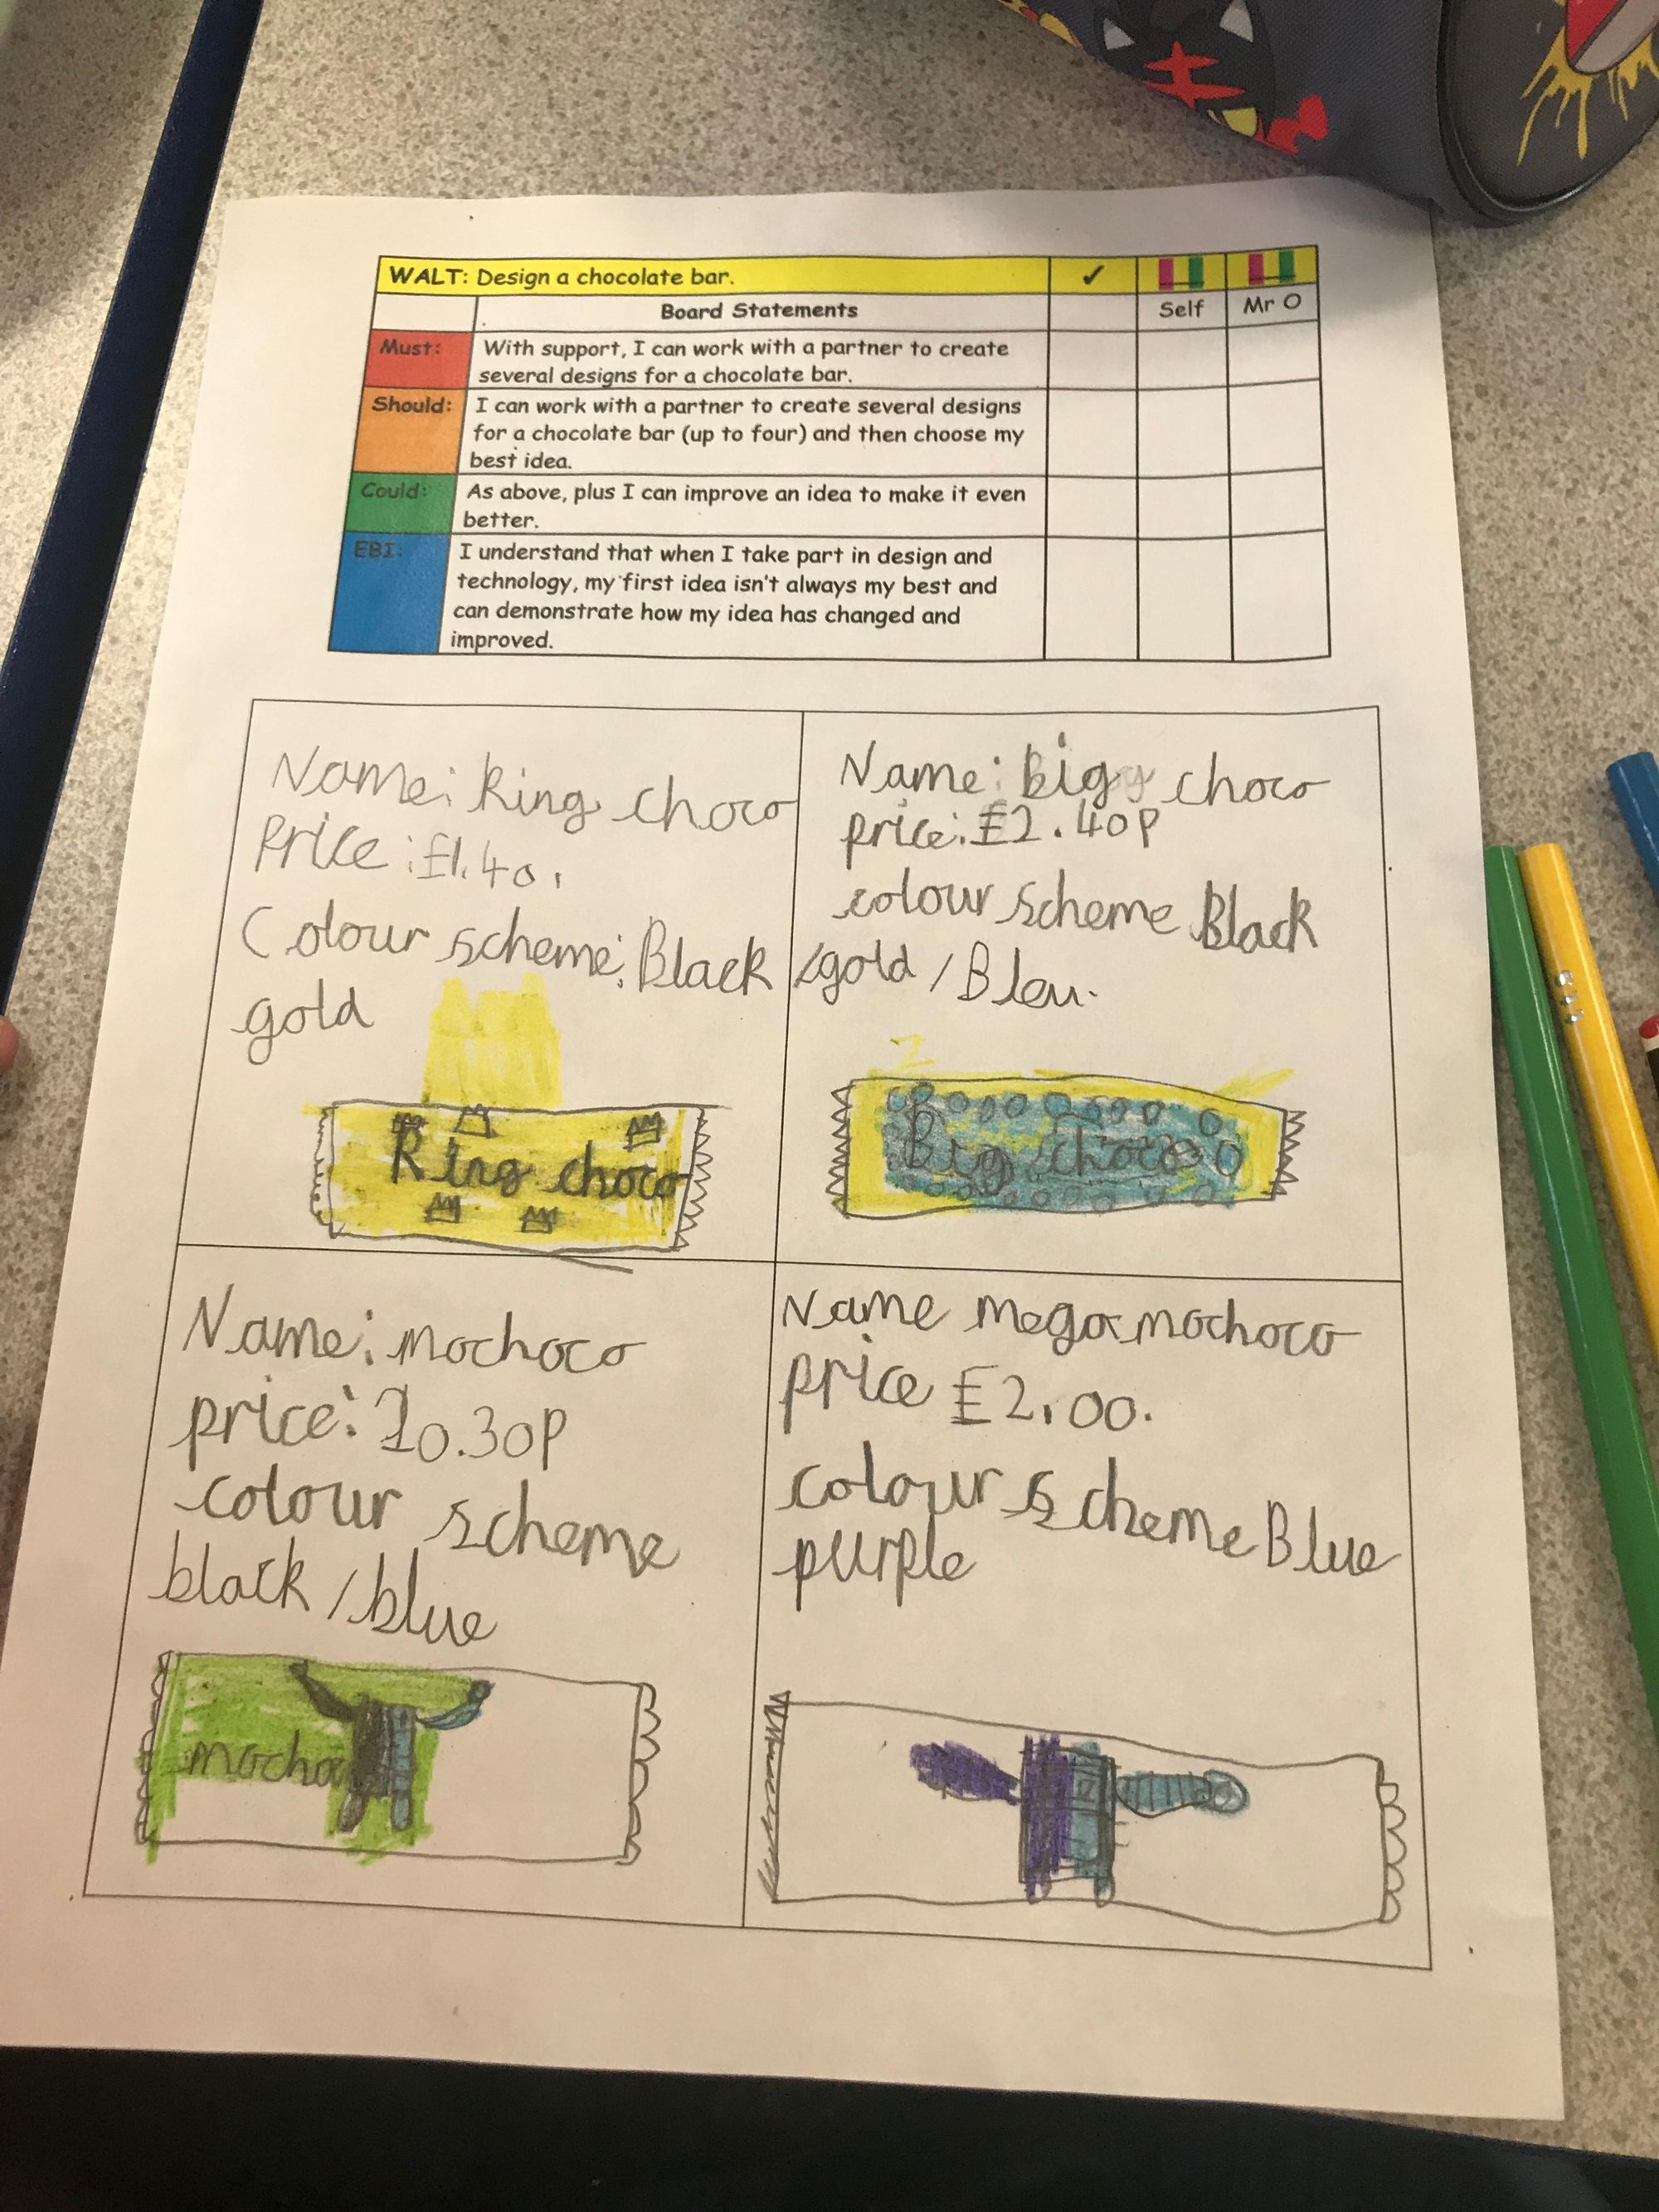 WALT: Design a chocolate bar. ✓
Board Statements Self Mr O
Must: With support, I can work with a partner to create
several designs for a chocolate bar.
Should: I can work with a partner to create several designs
for a chocolate bar (up to four) and then choose my
best idea.
Could: As above, plus I can improve an idea to make it even
better.
EBI: I understand that when I take part in design and
technology, my first idea isn't always my best and
can demonstrate how my idea has changed and
improved.
Name: King choco
Price: £1.40.
Colour scheme: Black
gold
King choco
Name: Big choco
price: £2.40p
colour scheme Black
/gold / Bleu.
Big choco
Name: mochoco
price: 0.30p
colour scheme
black / blue
Name megamochoco
price £2.00.
colour scheme Blue
purple